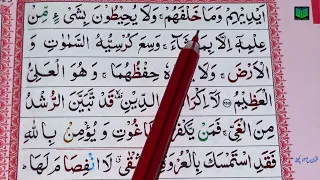 اَيْدِيْهِمْ وَمَا خَلْفَهُمْ ۚ وَلَا يُحِيْطُوْنَ بِشَيْءٍ مِّنْ
عِلْمِهٖٓ اِلَّا بِمَا شَآءَ ۚ وَسِعَ كُرْسِيُّهُ السَّمٰوٰتِ وَ
الْاَرْضَ ۚ وَلَا حِفْظُهُمَا ۚ وَهُوَ الْعَلِيُّ
الْعَظِيْمُ لَآ اِكْرَاهَ الدِّيْنِ ۙ قَدْ تَّبَيَّنَ الرُّشْدُ
مِنَ الْغَيِّ ۚ فَمَنْ يَّكْفُرْ بِالطَّاغُوْتِ وَيُؤْمِنْۢ بِاللّٰهِ
فَقَدِ اسْتَمْسَكَ بِالْعُرْوَةِ الْوُثْقٰى ۗ لَا انْفِصَامَ لَهَا ۗ